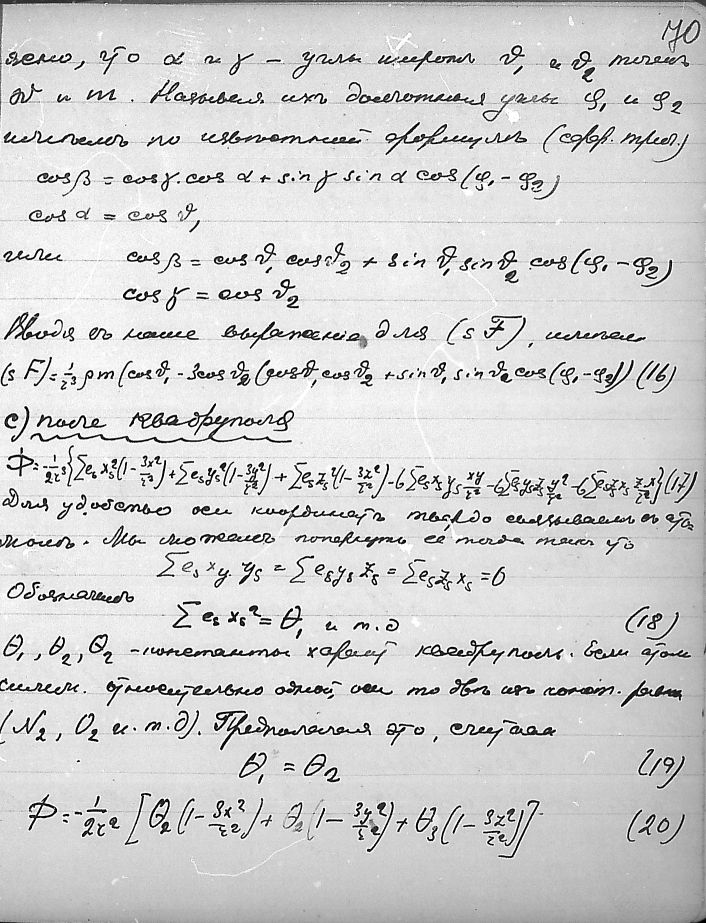 70
ясно, что α и γ – углы широт ϑ₁ и ϑ₂ точек
и m. Называя ихъ долготныя углы φ₁ и φ₂
имеемъ по известной формулъ (сфер. триг.)
cosβ = cosγ.cos α + sinγ sin α cos(φ₁ – φ₂)
cos α = cos ϑ₁
или cosβ = cos ϑ₁ cos ϑ₂ + sin ϑ₁ sin ϑ₂ cos(φ₁ – φ₂)
cos γ = cos ϑ₂
Вводя въ наше выражение для (s F), имеем
(s F) = 1/r³ ρm (cos ϑ₁ – 3cos ϑ₂ (cos ϑ₁ cos ϑ₂ + sin ϑ₁ sin ϑ₂ cos(φ₁ – φ₂))) (16)
c) поле квадруполя
Φ = –1/2r³ {∑eₛxₛ²(1 – 3x²/r²) + ∑eₛyₛ²(1 – 3y²/r²) + ∑eₛzₛ²(1 – 3z²/r²) – 6∑eₛxₛyₛ xy/r² – 6∑eₛyₛzₛ yz/r² – 6∑eₛzₛxₛ zx/r²} (17)
Для удобства оси координатъ твердо связываемъ съ ато-
момъ. Мы можемъ повернуть ее тогда такъ что
∑eₛ xₛ yₛ = ∑eₛyₛ zₛ = ∑eₛzₛ xₛ = 0
Обозначимъ
∑eₛ xₛ² = Θ₁ и т.д (18)
Θ₁, Θ₂, Θ₂ – константы характ квадруполь. Если атом
симм. относительно одной оси то две изъ конст. равны
(N₂, O₂ и.т.д). Предполагая это, считаем
Θ₁ = Θ₂ (19)
Φ = –1/2r² [Θ₂(1 – 3x²/r²) + Θ₂(1 – 3y²/r²) + Θ₃(1 – 3z²/r²)] (20)